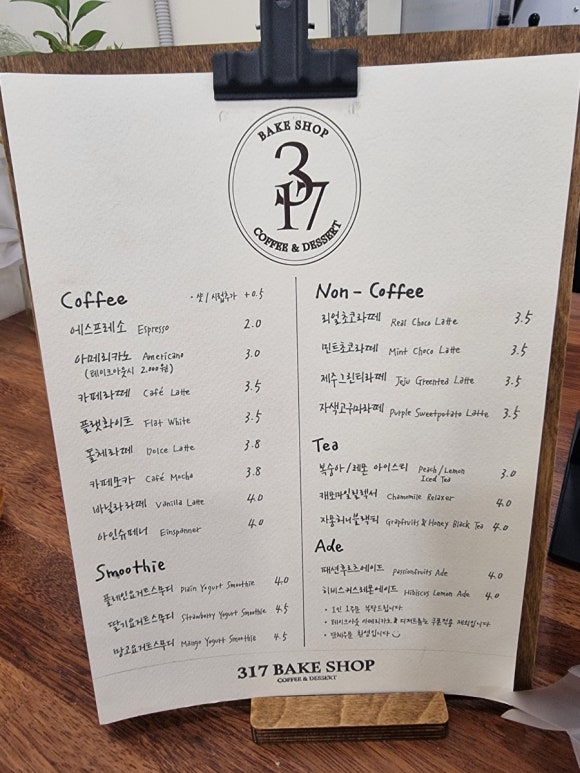 BAKE SHOP
317
COFFEE & DESSERT
Coffee · 샷/시럽추가 +0.5
에스프레소 Espresso 2.0
아메리카노 Americano 3.0
(테이크아웃시 2.000원)
카페라떼 Café Latte 3.5
플랫화이트 Flat White 3.5
돌체라떼 Dolce Latte 3.8
카페모카 Café Mocha 3.8
바닐라라떼 Vanilla Latte 4.0
아인슈페너 Einspanner 4.0
Smoothie
플레인요거트스무디 Plain Yogurt Smoothie 4.0
딸기요거트스무디 Strawberry Yogurt Smoothie 4.5
망고요거트스무디 Mango Yogurt Smoothie 4.5
Non - Coffee
리얼초코라떼 Real Choco Latte 3.5
민트초코라떼 Mint Choco Latte 3.5
제주그린티라떼 Jeju Greentea Latte 3.5
자색고구마라떼 Purple Sweetpotato Latte 3.5
Tea
복숭아/레몬 아이스티 Peach/Lemon Iced Tea 3.0
캐모마일릴렉서 Chamomile Relaxer 4.0
자몽허니블랙티 Grapfruits & Honey Black Tea 4.0
Ade
패션후르츠에이드 Passionfruits Ade 4.0
히비스커스레몬에이드 Hibiscus Lemon Ade 4.0
· 1인 1주문 부탁드립니다
· 테이크아웃 아메리카노 & 디저트류는 쿠폰적용 제외입니다
· 단체주문 환영입니다
317 BAKE SHOP
COFFEE & DESSERT